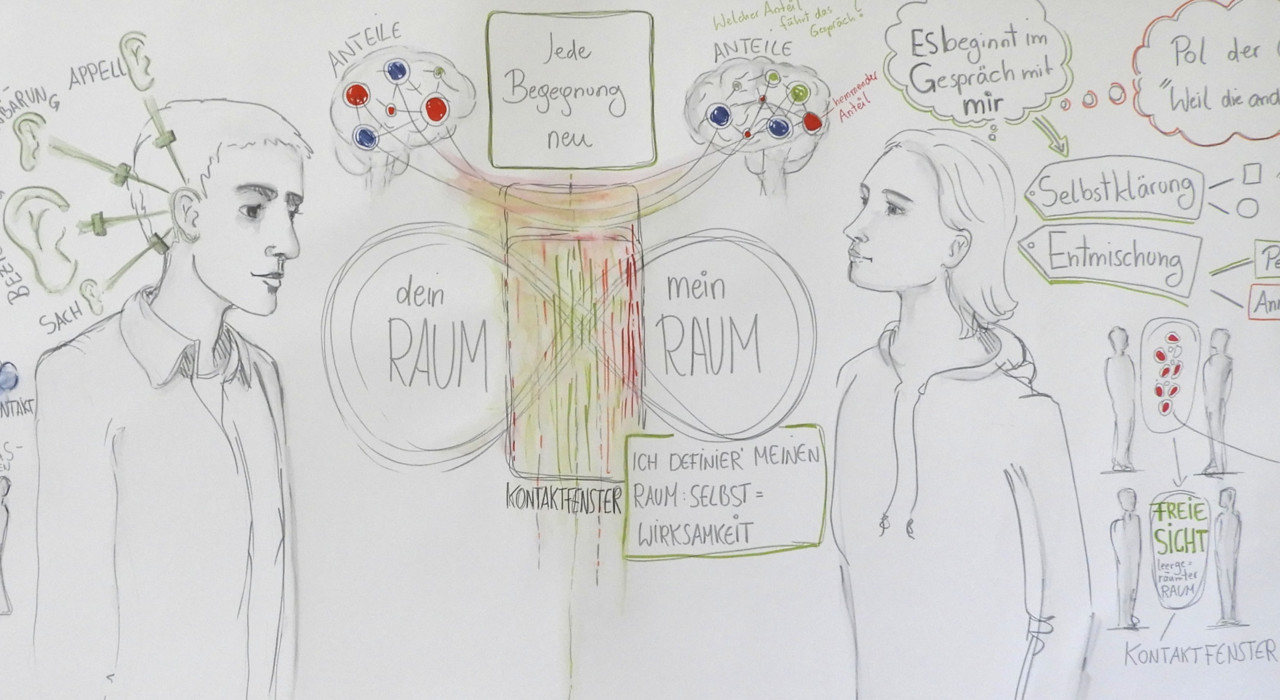 ANTEILE
APPELL
BARUNG
BEZIE
SACH
NTAKT
Jede
Begegnung
neu
Welcher Anteil
führt das
Gespräch?
ANTEILE
hemmender
Anteil
ES beginnt im
Gespräch mit
mir
Pol der
"Weil die and
Selbstklärung
Entmischung
Pe
An
dein
RAUM
mein
RAUM
KONTAKTFENSTER
ICH DEFINIER' MEINEN
RAUM: SELBST =
WIRKSAMKEIT
FREIE
SICHT
leerge=
räumter
RAUM
KONTAKTFENSTER